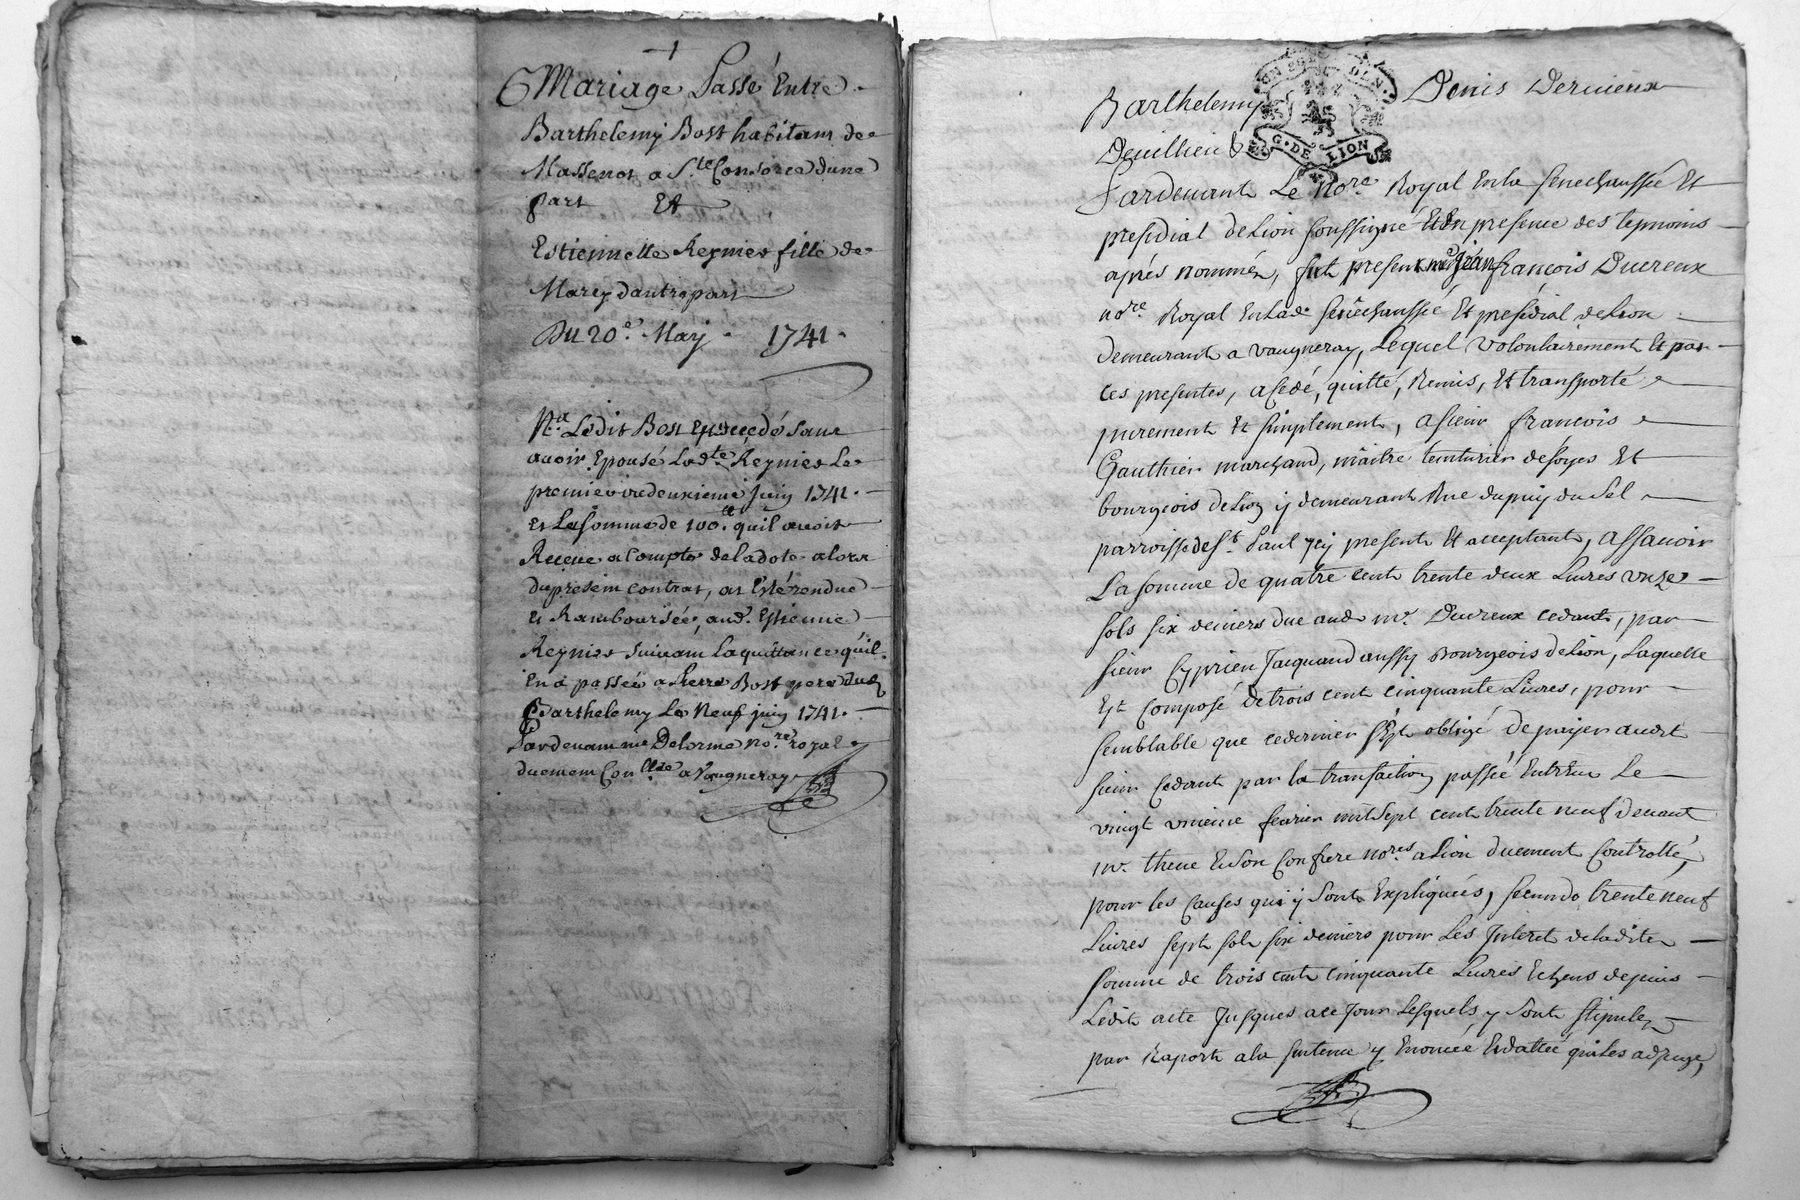 Mariage Passé Entre
Barthelemy Bost habitant de
Massenot a S.te Consorce dune
part Et
Estiennette Reynier fille de
Marcy dautre part
Du 20e. May 1741.
N.a Ledit Bost Est decedé sans
avoir Epousé Lad.te Reynier Le
premier ou deuxieme juin 1741.
et La somme de 100.tt quil avoit
Receue a compte de la dote alors
du present contrat, at Esté rendue
et Ramboursée, aud. Estienne
Reynier suivant la quittance quil
En a passée a Pierre Bost pere dud.
Barthelemy Le Neuf juin 1741.
Pardevant me Delorme no.re royal
duement Con.llée a Vaugneray
Barthelemy Denis Dervieux
Devillieu
G. DE LION
Pardevant Le No.re Royal En la senechaussée Et
presidial de Lion soussigné Et En presence des temoins
après nommés, fut present me Jean françois Ducreux
no.re Royal En Lad. senechaussée Et presidial de Lion
demeurant a vaugneray, Lequel volontairement Et par
ces presentes, a cedé, quitté, Remis, Et transporté
purement Et simplement, a sieur françois
Gauthier marchand, maitre teinturier de soyes Et
bourgeois de Lion y demeurant Rue du puy du Sel
parroisse de St. Paul icy present Et acceptant, assavoir
La somme de quatre cent trente deux Livres onze
sols six deniers due aud. mr. Ducreux cedant, par
sieur Cyprien Jacquand aussy Bourgeois de Lion, Laquelle
Est Composé de trois cent cinquante Livres, pour
semblable que ce dernier s'est obligé de payer audt
sieur Cedant par la transaction passée Entr'Eux Le
vingt unieme fevrier mil sept cent trente neuf devant
mr. theve Et son Confrere no.res a Lion duement Controllé,
pour les Causes qui y sont Expliquées, secundo trente neuf
Livres sept sols six deniers pour Les Interet de ladite
somme de trois cent cinquante Livres Echeus depuis
Ledit acte Jusques a ce Jour Lesquels y sont stipulez
par Raport a la sentence y Enoncée Et dattée qui les adjuge,